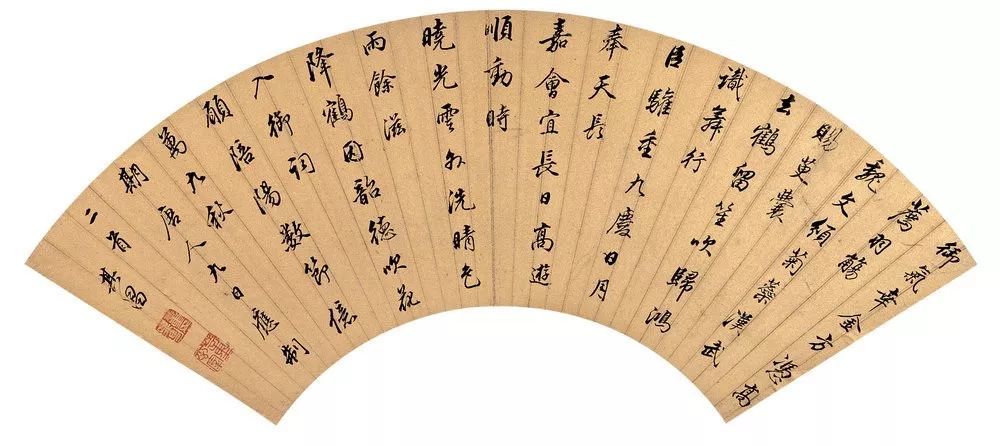 御氣幸金方憑高
薦羽觴
魏文頒菊蘂漢武
賜萸囊
去鶴留笙吹歸鴻
識舞行
臣驩重九慶日月
奉天長
嘉會宜長日高遊
順動時
曉光雲外洗晴色
雨餘滋
降鶴因韶德吹花
入御詞
願陪陽數節億
萬九秋
期唐人九日應制
二首